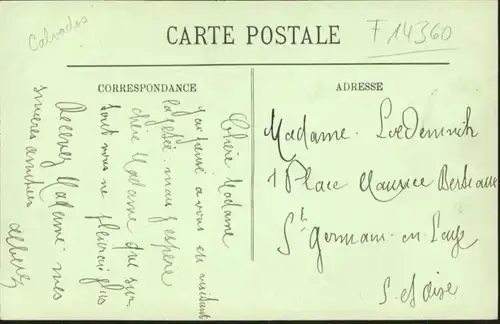 Calvados
CARTE POSTALE
F 14360
CORRESPONDANCE
ADRESSE
Chère Madame
j'ai pensé a vous en visitant
mais j'espère
chère Madame que sur
tout nous ne
Recevez Madame mes
sincères amitiés
Madame
1 Place Maurice Berteaux
St Germain-en-Laye
S. et Oise